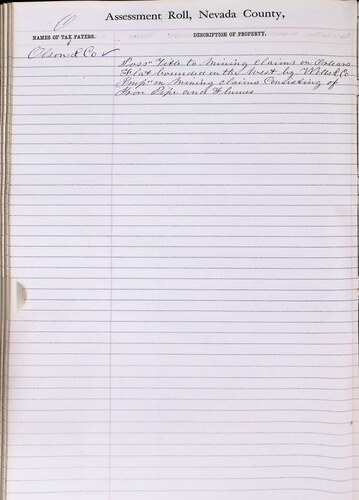 O
Assessment Roll, Nevada County,
NAMES OF TAX PAYERS.
DESCRIPTION OF PROPERTY.
Olson & Co ✓
Poss'n Title to Mining Claims on Orleans
Flat bounded on the West by Wells & Co
Imp'ts on Mining Claims Consisting of
Iron Pipe and Flumes